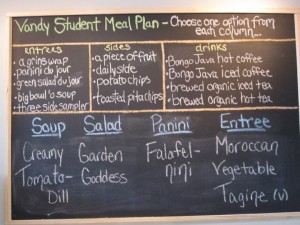 Vandy Student Meal Plan - Choose one option from
each column...
entrees
• a grins wrap
• panini du jour
• green salad du jour
• big bowl 'o soup
• three side sampler
sides
• a piece of fruit
• daily side
• potato chips
• toasted pita chips
drinks
• Bongo Java hot coffee
• Bongo Java Iced coffee
• brewed organic iced tea
• brewed organic hot tea
Soup
Creamy
Tomato-
Dill
Salad
Garden
Goddess
Panini
Falafel-
nini
Entree
Moroccan
Vegetable
Tagine (v)